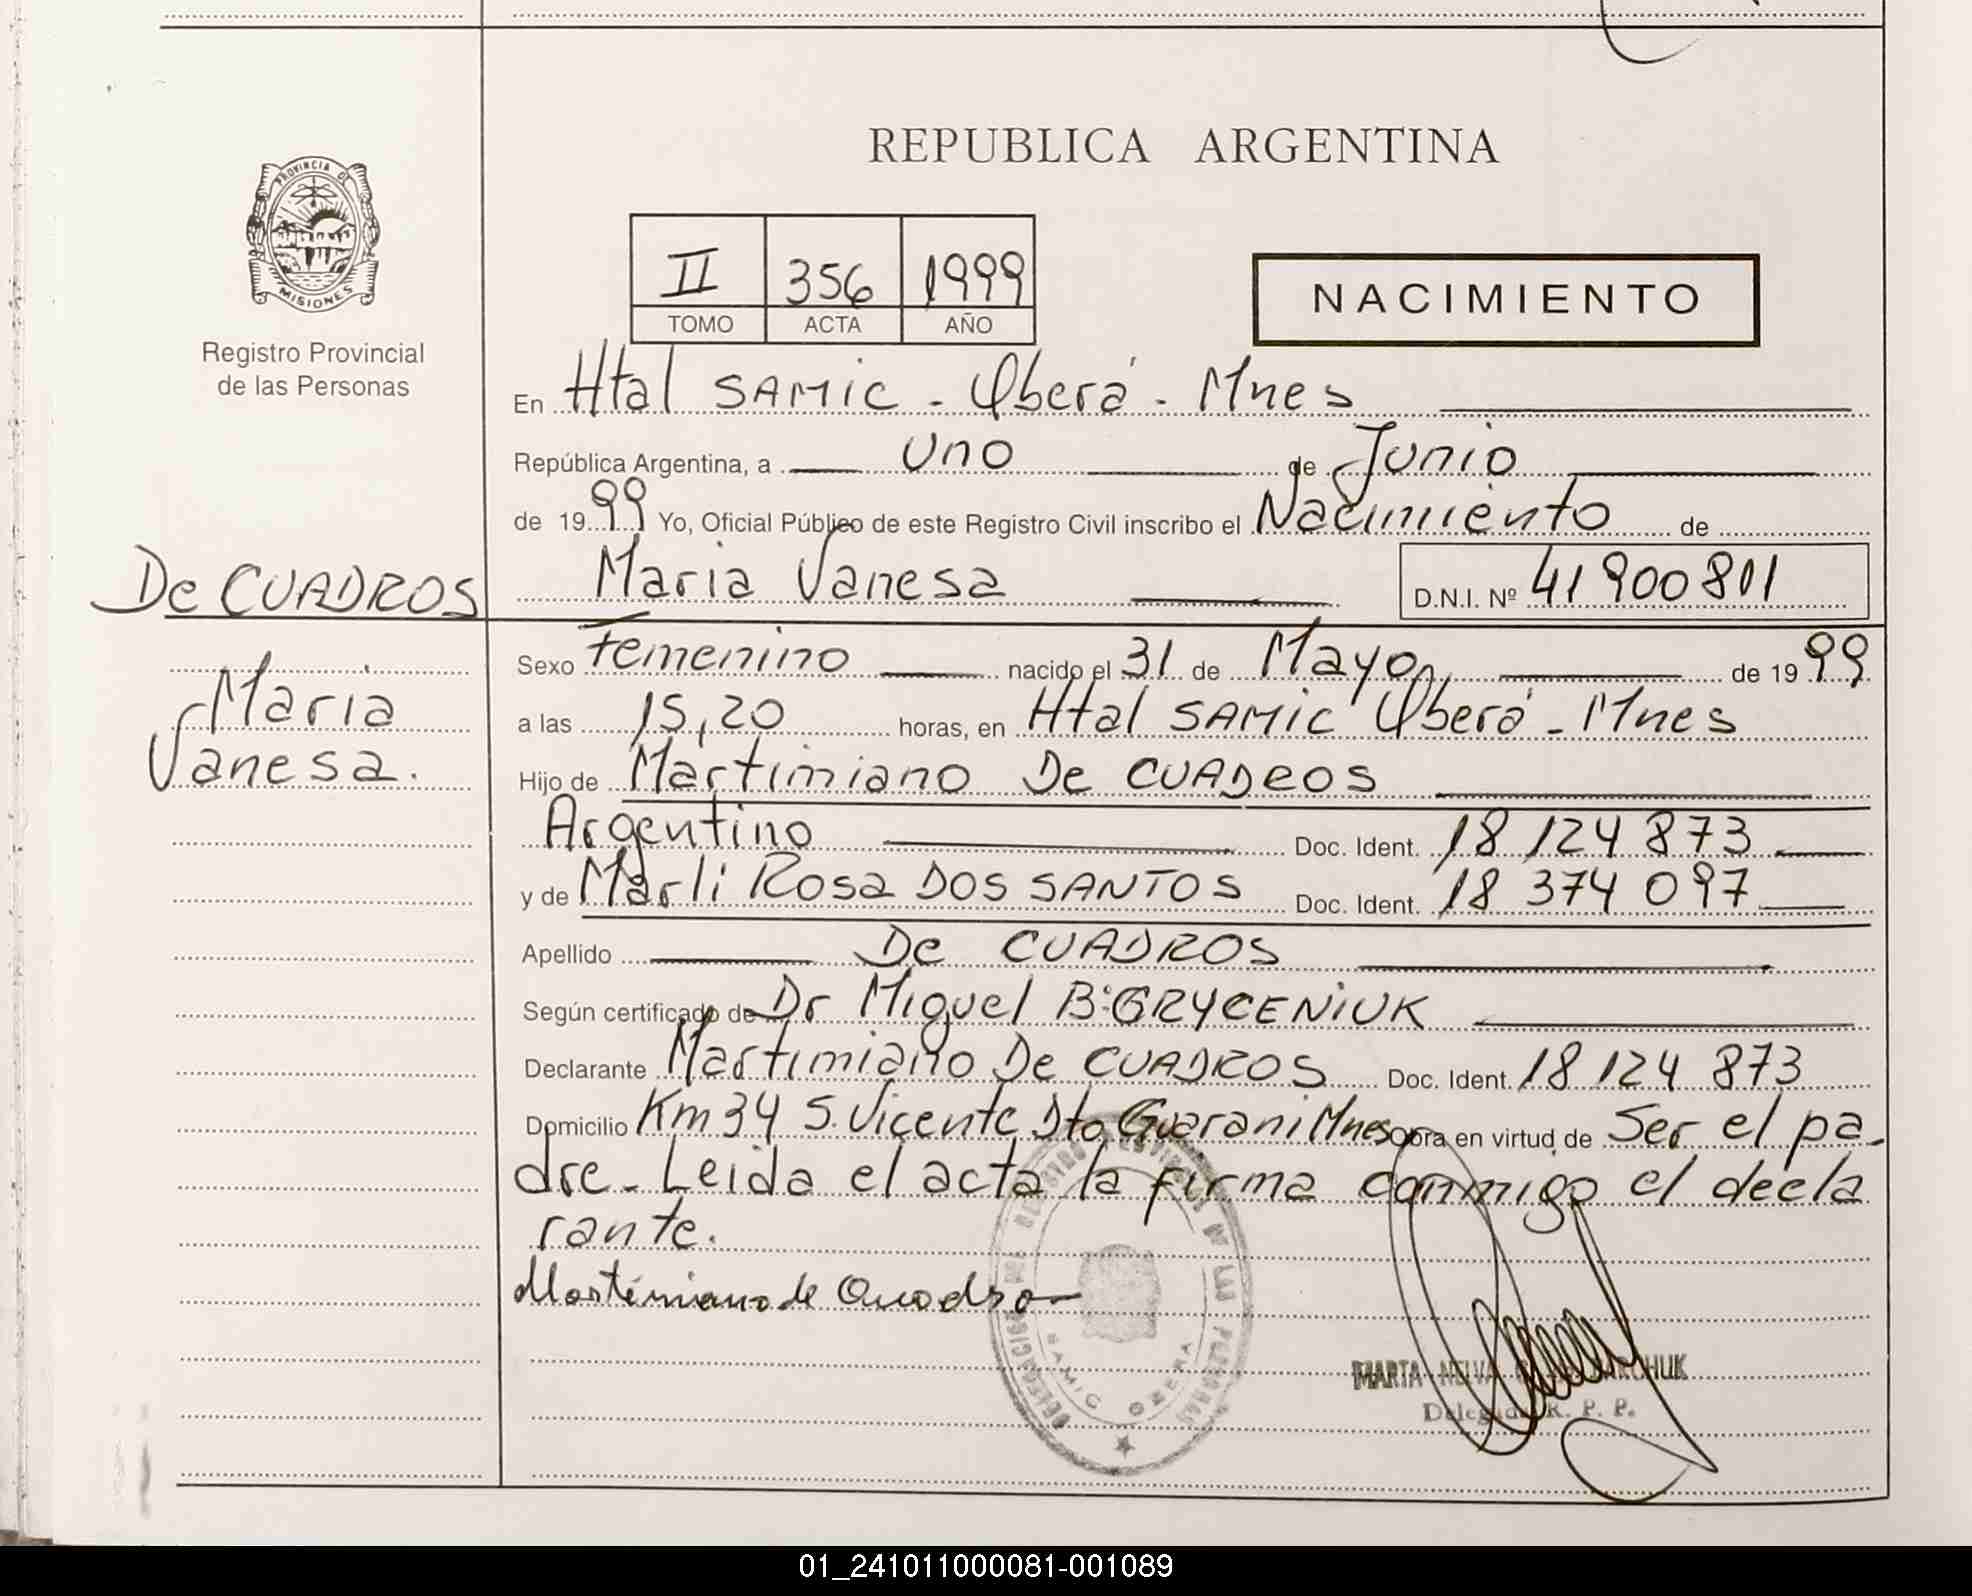 REPUBLICA ARGENTINA
PROVINCIA DE
MISIONES
Registro Provincial
de las Personas
II 356 1999
TOMO ACTA AÑO
NACIMIENTO
En Htal SAMIC - Oberá - Mnes
República Argentina, a uno de Junio
de 1999 Yo, Oficial Público de este Registro Civil inscribo el Nacimiento de
De CUADROS
Maria Vanesa D.N.I. Nº 41 900 801
Maria
Vanesa.
Sexo femenino nacido el 31 de Mayo de 1999
a las 15,20 horas, en Htal SAMIC Oberá - Mnes
Hijo de Martimiano De CUADROS
Argentino Doc. Ident. 18 124 873
y de Marli Rosa DOS SANTOS Doc. Ident. 18 374 097
Apellido De CUADROS
Según certificado de Dr Miguel B. GRYCENIUK
Declarante Martimiano De CUADROS Doc. Ident. 18 124 873
Domicilio Km 34 S. Vicente Dto Guarani Mnes obra en virtud de Ser el pa-
dre - Leida el acta la firma conmigo el decla
rante.
Martimiano de Quadro
SAMIC OBERA
MARTA NELVA
Delegada R. P. P.
01_241011000081-001089